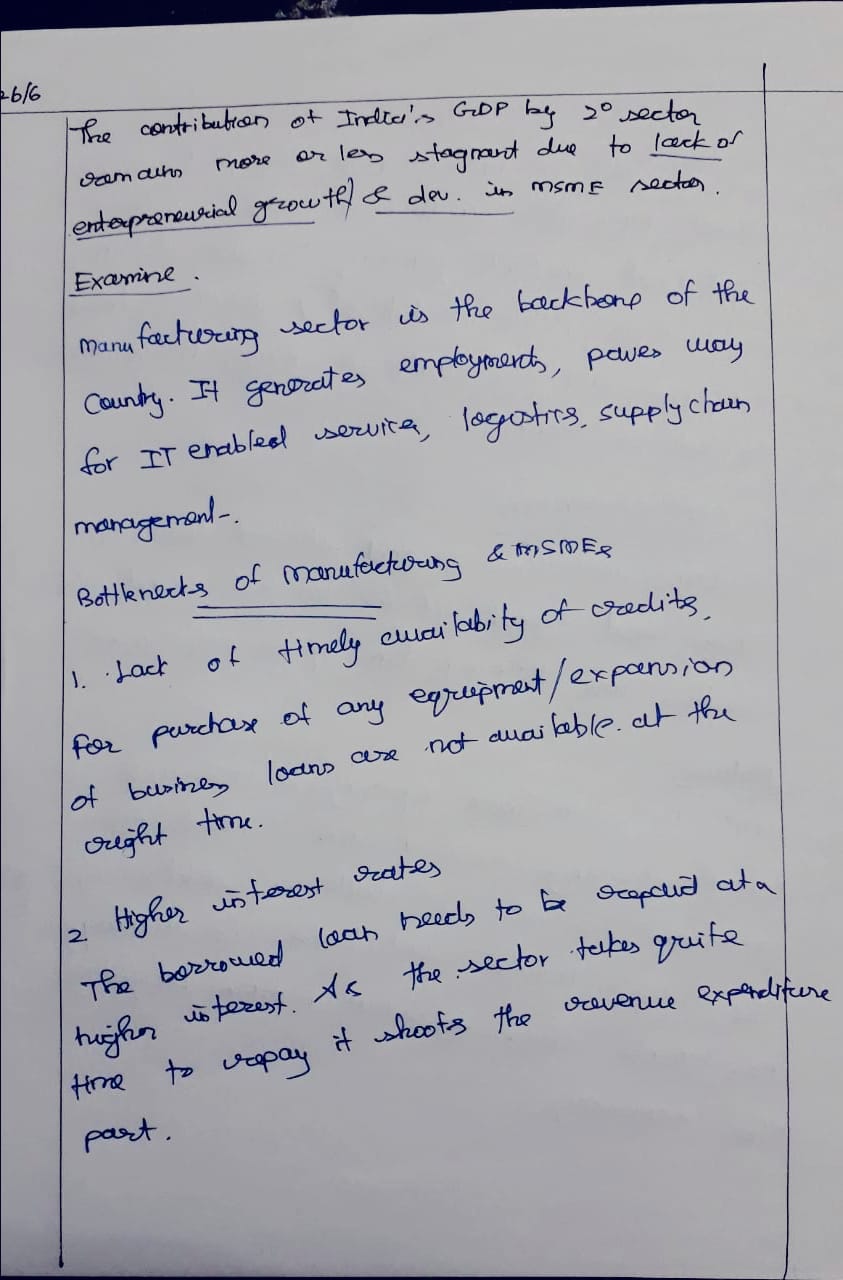 26/6
The contribution of India's GDP by 2° sector
remains more or less stagnant due to lack of
enterpreneurial growth & dev. in MSME sector.
Examine.
Manufacturing sector is the backbone of the
Country. It generates employments, paves way
for IT enabled service, logistics, supply chain
management.
Bottlenecks of manufacturing & MSMEs
1. Lack of timely availabity of credits.
For purchase of any equipment/expansion
of business loans are not available. at the
right time.
2. Higher interest rates
The borrowed loan needs to be repaid at a
higher interest. As the sector takes quite
time to repay it shoots the revenue expenditure
part.